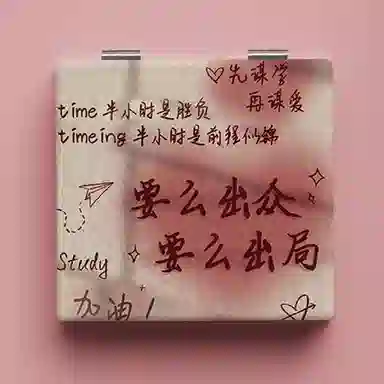 ♡先谋学
再谋爱
time半小时是胜负
timeing半小时是前程似锦
要么出众
要么出局
Study
加油!